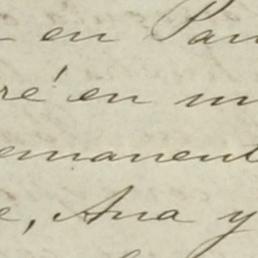 en Pan
ré en m
emanent
e, Ana y